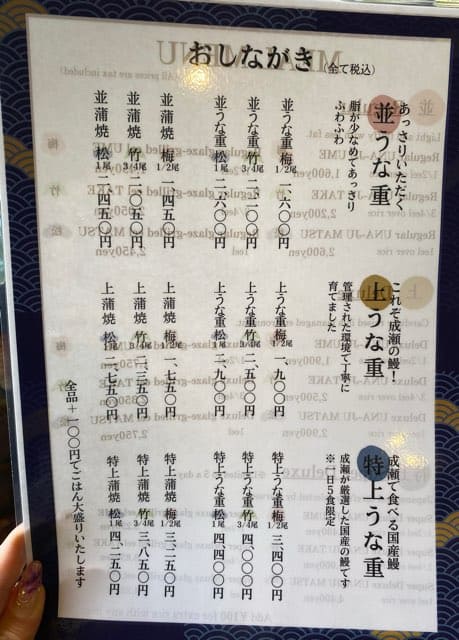 おしながき（全て税込）
あっさりいただく
並うな重
脂が少なめであっさり
ふわふわ
並うな重 梅 1/2尾 一、六〇〇円
並うな重 竹 3/4尾 二、二〇〇円
並うな重 松 1尾 二、六〇〇円
並蒲焼 梅 1/2尾 一、四五〇円
並蒲焼 竹 3/4尾 二、〇五〇円
並蒲焼 松 1尾 二、四五〇円
これぞ成瀬の鰻！
上うな重
管理された環境で丁寧に
育てました
上うな重 梅 1/2尾 一、九〇〇円
上うな重 竹 3/4尾 二、五〇〇円
上うな重 松 1尾 二、九〇〇円
上蒲焼 梅 1/2尾 一、七五〇円
上蒲焼 竹 3/4尾 二、三五〇円
上蒲焼 松 1尾 二、七五〇円
成瀬で食べる国産鰻
特上うな重
成瀬が厳選した国産の鰻です
※一日５食限定
特上うな重 梅 1/2尾 三、四〇〇円
特上うな重 竹 3/4尾 四、〇〇〇円
特上うな重 松 1尾 四、四〇〇円
特上蒲焼 梅 1/2尾 三、二五〇円
特上蒲焼 竹 3/4尾 三、八五〇円
特上蒲焼 松 1尾 四、二五〇円
全品＋一〇〇円でごはん大盛りいたします